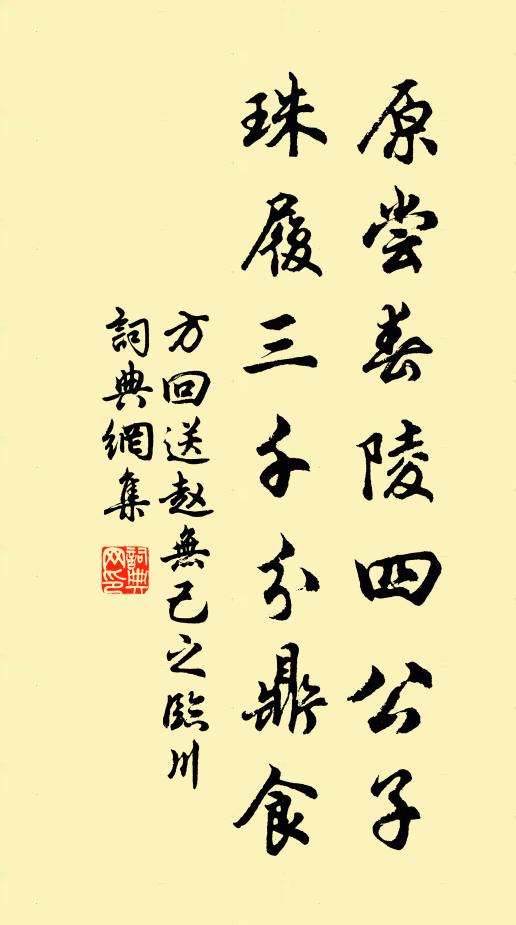 原尝春陵四公子
珠履三千分鼎食
方回送赵無己之臨川
詞典網集
詞典网印